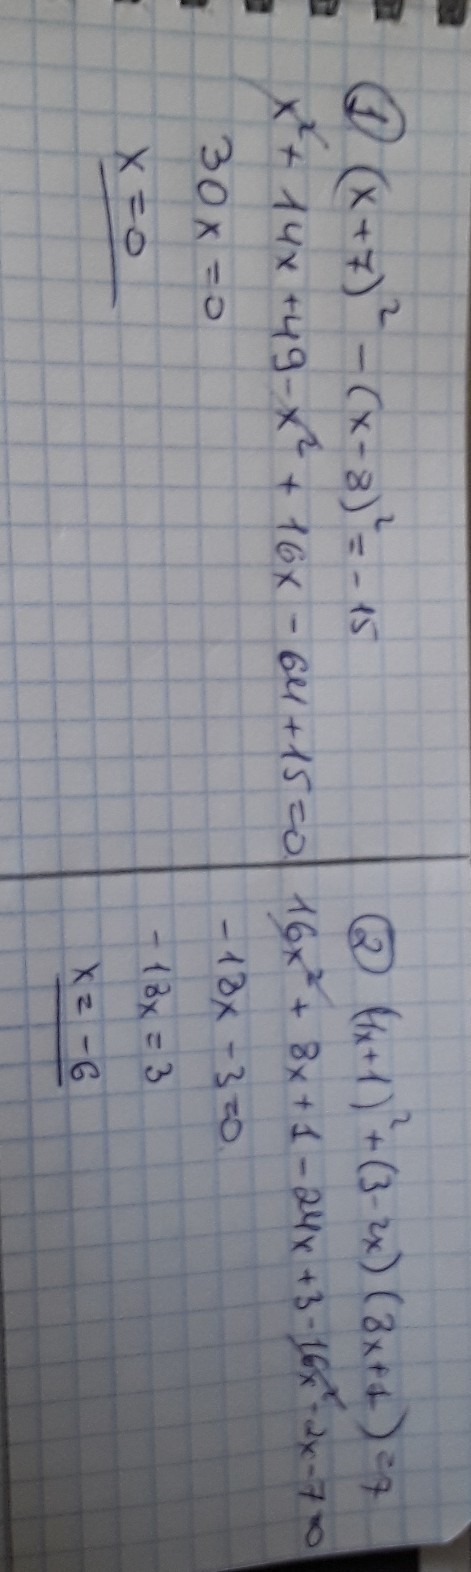 ① (x+7)² - (x-8)² = -15
x² + 14x + 49 - x² + 16x - 64 + 15 = 0
30x = 0
x = 0
② (4x+1)² + (3-2x)(8x+1) = 7
16x² + 8x + 1 - 24x + 3 - 16x² - 2x - 7 = 0
-18x - 3 = 0
-18x = 3
x = -6